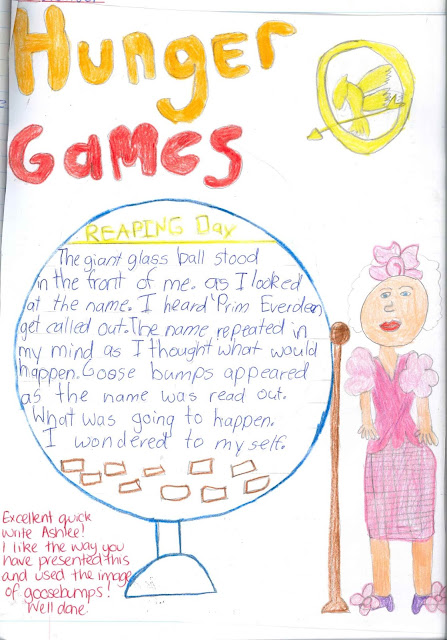 Hunger
Games
REAPING Day
The giant glass ball stood
in the front of me. as I looked
at the name. I heard 'Prim Everdeen
get called out. The name repeated in
my mind as I thought what would
happen. Goose bumps appeared
as the name was read out.
What was going to happen.
I wondered to my self.
Excellent quick
write Ashlee!
I like the way you
have presented this
and used the image
of goosebumps!
Well done